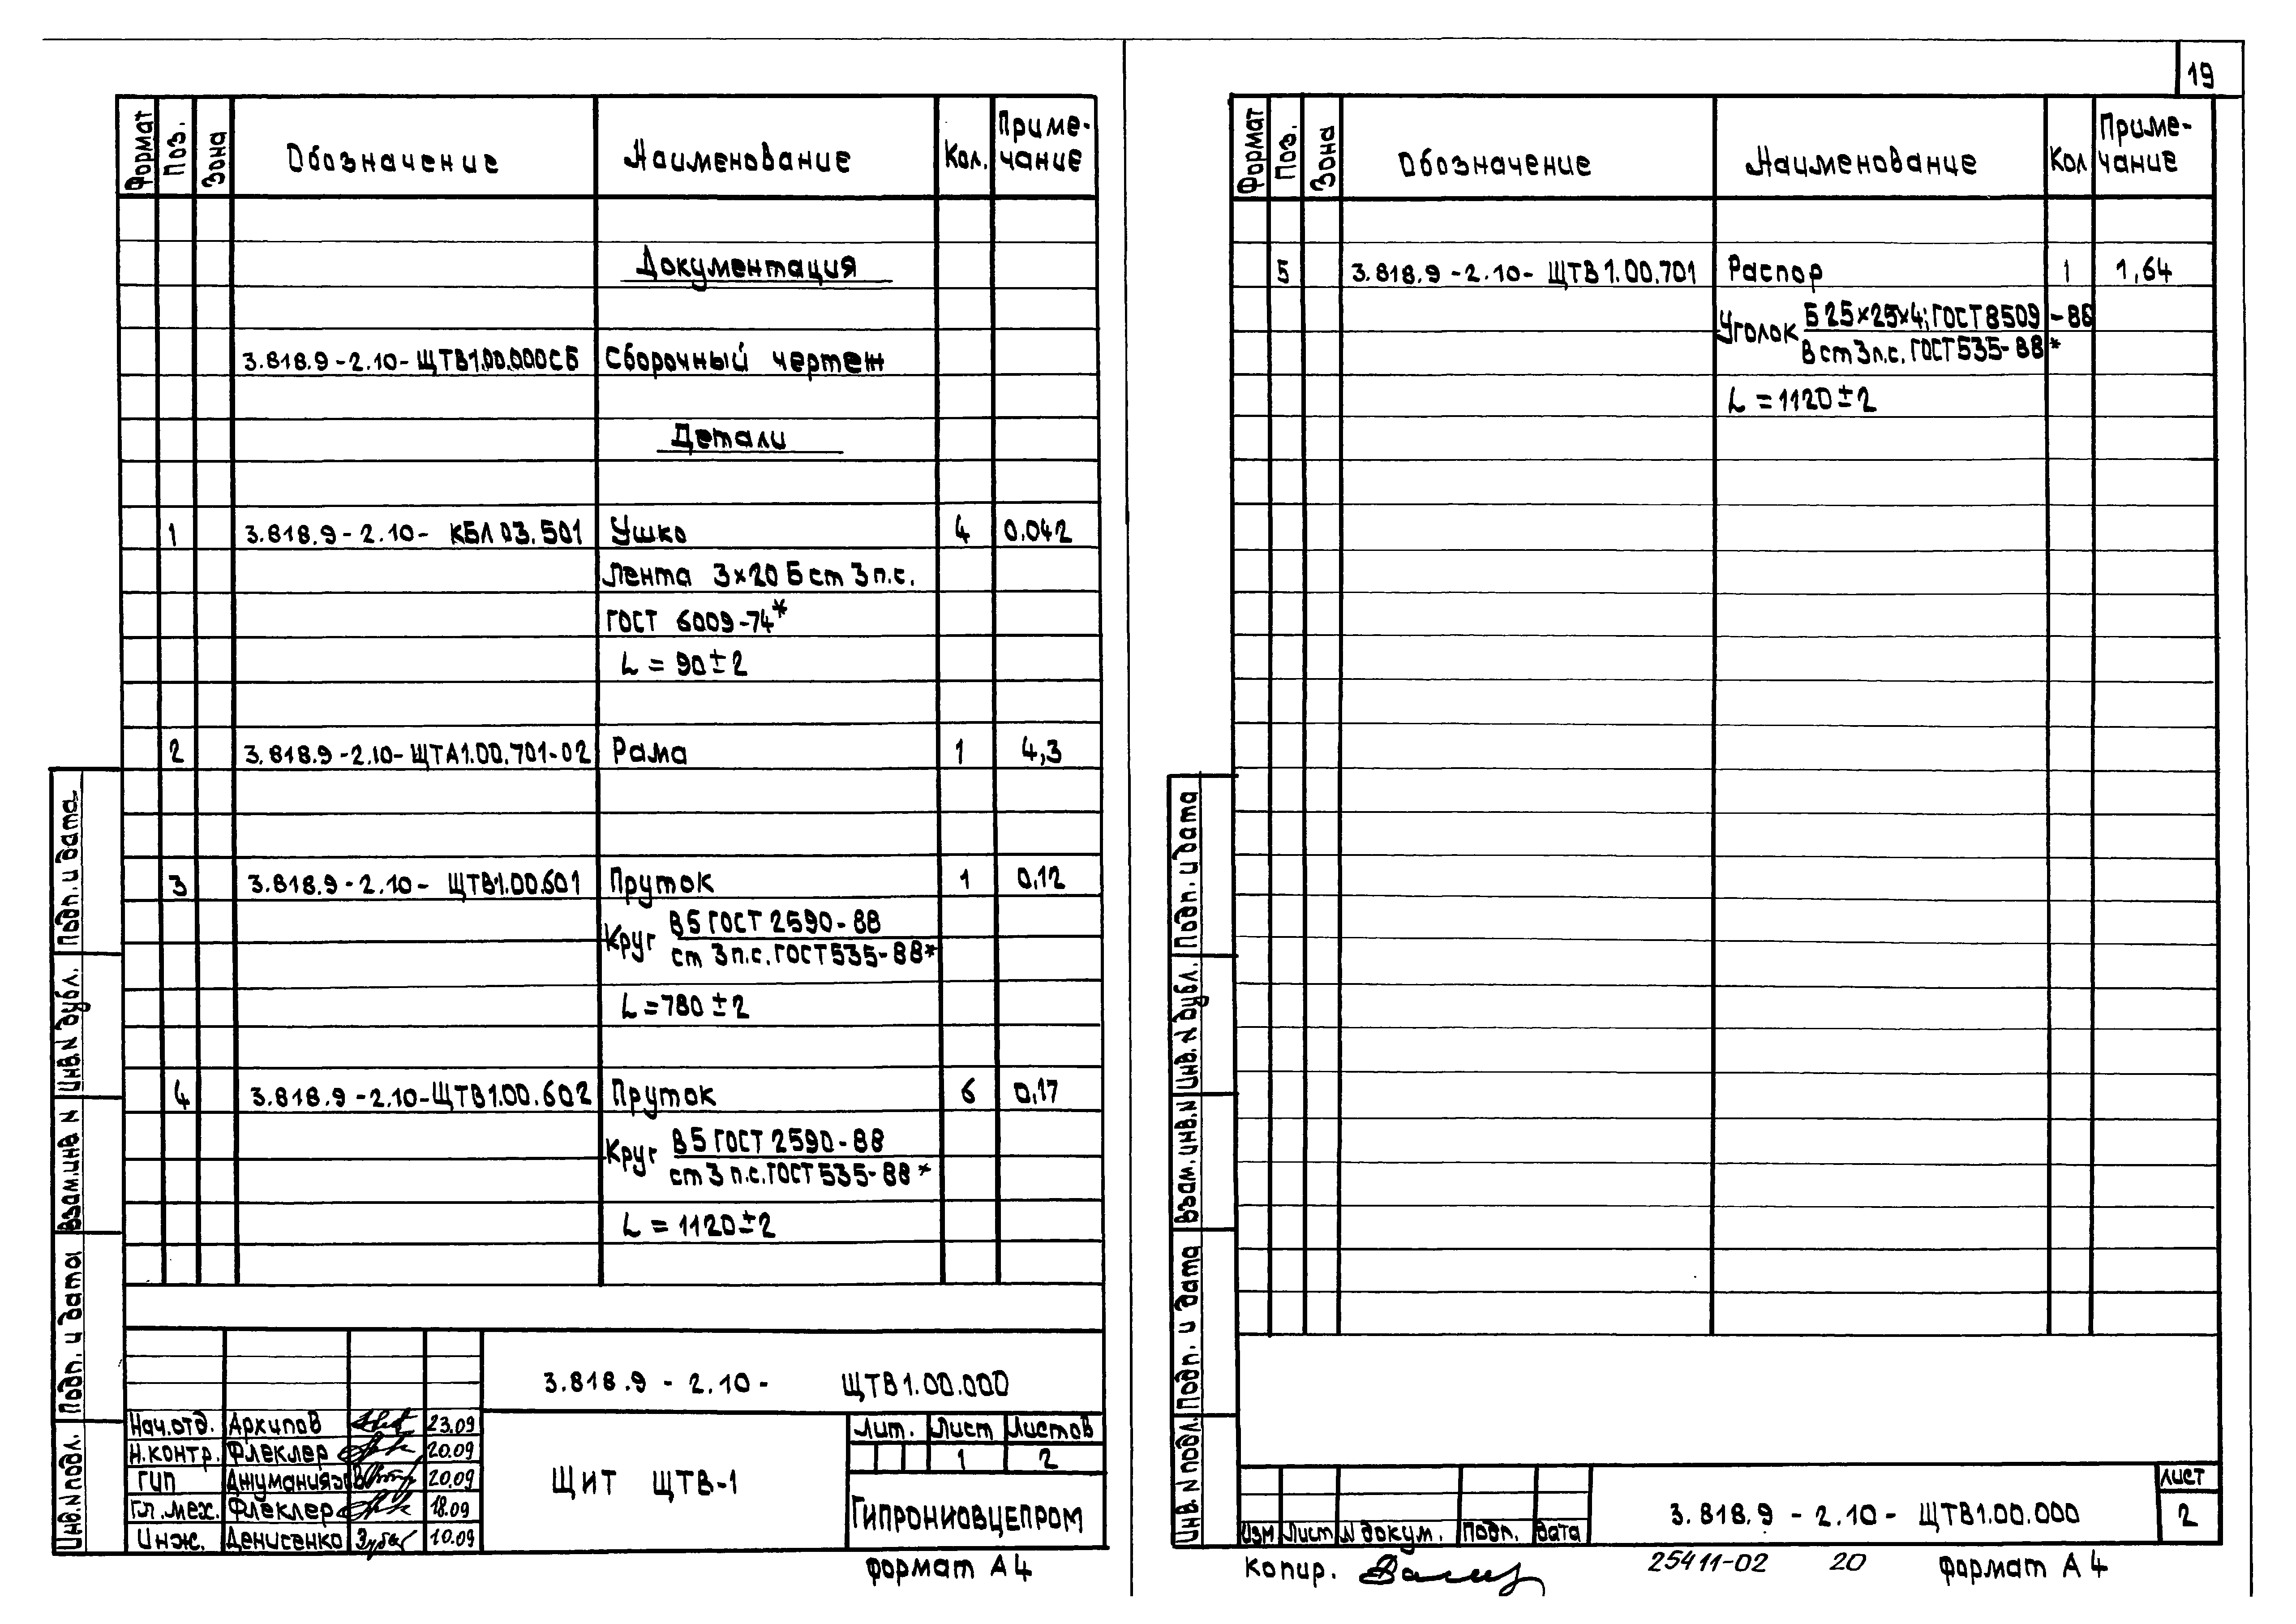 19
Формат Поз. Зона Обозначение Наименование Кол. Приме-чание
Документация
3.818.9-2.10-ЩТВ1.00.000СБ Сборочный чертеж
Детали
1 3.818.9-2.10- КБЛ 03.501 Ушко 4 0.042
Лента 3×20 Б ст 3 п.с.
ГОСТ 6009-74*
L = 90±2
2 3.818.9-2.10-ЩТА1.00.701-02 Рама 1 4,3
3 3.818.9-2.10- ЩТВ1.00.601 Пруток 1 0,12
Круг В5 ГОСТ 2590-88
ст 3 п.с. ГОСТ 535-88*
L=780±2
4 3.818.9-2.10-ЩТВ1.00.602 Пруток 6 0,17
Круг В5 ГОСТ 2590-88
ст 3 п.с. ГОСТ 535-88*
L = 1120±2
3.818.9 - 2.10 - ЩТВ1.00.000
Нач.отд. Архипов 23.09
Н.контр. Флеклер 20.09
ГИП 20.09
Гл.мех. Флеклер 18.09
Инж. Денисенко 10.09
ЩИТ ЩТВ-1
Лит. Лист Листов
1 2
ГИПРОНИОВЦЕПРОМ
Формат А4
Подп. и дата
Инв.N дубл.
Взам.инв N
Подп. и дата
Инв.N подл.
Формат Поз. Зона Обозначение Наименование Кол Приме-чание
5 3.818.9-2.10- ЩТВ1.00.701 Распор 1 1,64
Уголок Б 25×25×4; ГОСТ 8509-86
Вст 3 п.с. ГОСТ 535-88*
L = 1120±2
Подп. и дата
Инв. N дубл.
Взам. инв. N
Подп. и дата
Инв. N подл.
Изм Лист N докум. Подп. Дата
3.818.9 - 2.10 - ЩТВ1.00.000
Лист
2
Копир.
25411-02 20
Формат А4